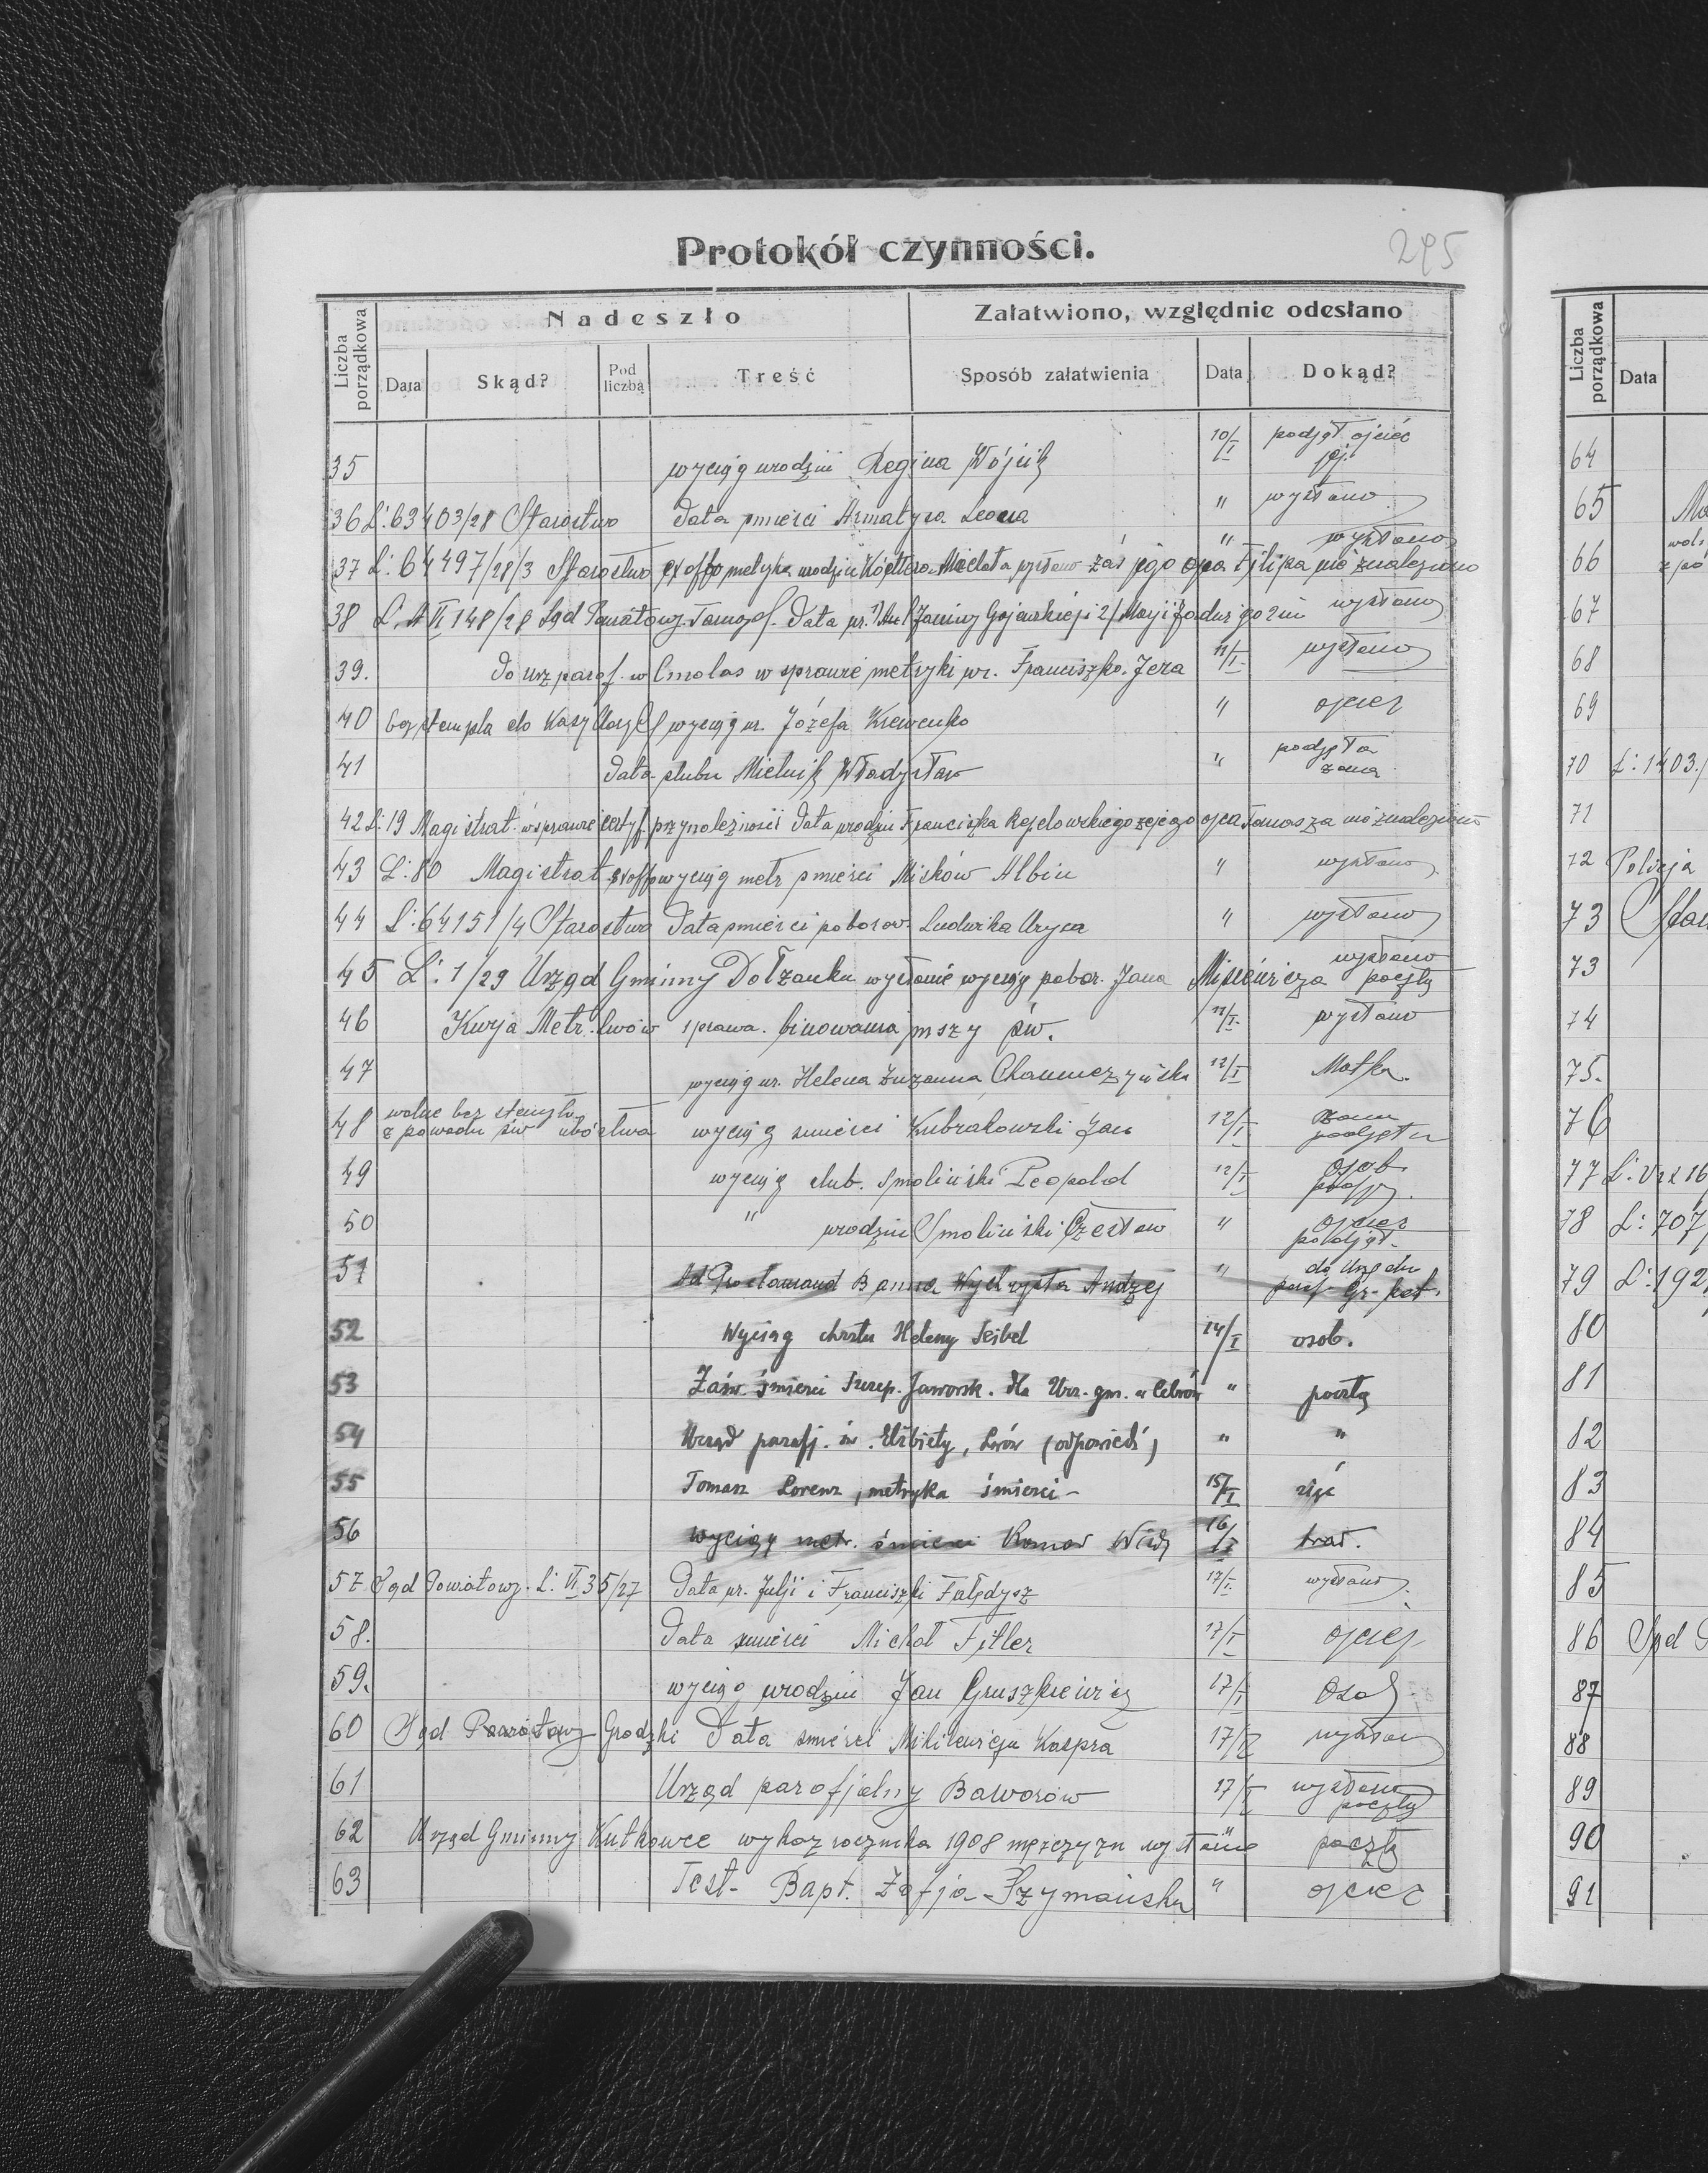 Protokół czynności.
295
Liczba porządkowa
Nadeszło
Załatwiono, względnie odesłano
Data
Skąd?
Pod liczbą
Treść
Sposób załatwienia
Data
Dokąd?
35 wyciąg urodzin Regina Wójcik 10/I podjął ojciec jej
36 L: 63403/28 Starostwo Data śmierci Armatysa Leona " wysłano
37 L: 64497/28/3 Starostwo ex offo metryka urodzin Michała wysłano zaś jego ojca Filipa nie znaleziono " wysłano
38 L. A VI 148/28 Sąd Powiatowy Tarnop. Data ur. 1) Janiny Gajewskiej i 2/ Maryi wysłano
39. do urz paraf. w Cmolas w sprawie metryki ur. Franciszka Jeza 11/I wysłano
40 bez stempla do Kasy wyciąg ur. Józefa Krewenko " ojciec
41 Data ślubu Mielnik Władysław " podjęła żona
42 L: 19 Magistrat w sprawie certyf. przynależności Data urodzin Franciszka jego ojca Tomasza nie znaleziono
43 L: 80 Magistrat ex offo wyciąg metr śmierci Misków Albin " wysłano
44 L: 64151/4 Starostwo Data śmierci poborow. Ludwika Uryca " wysłano
45 L: 1/29 Urząd Gminny Dołżanka wysłanie wyciąg pobor. Jana Misiewicza wysłano pocztą
46 Kurja Metr. Lwów sprawa binowania mszy św. 12/I wysłano
47 wyciąg ur. Helena Zuzanna 12/I Matka.
48 wolne bez stempla z powodu św ubóstwa wyciąg śmierci Kubrakowski Jan 12/I żona podjęła
49 wyciąg ślub. Smoliński Leopold 12/I osob. podj.
50 " urodzin Smoliński Czesław " ojciec podjął
51 Ad Proclamand Banna Andrzej " do Urzędu paraf Gr-kat.
52 Wyciąg chrztu Heleny Seibel 14/I osob.
53 Zaśw. śmierci Szczep. Jaworsk. dla Urz. gm. w " pocztą
54 Urząd parafj. św. Elżbiety, Lwów (odpowiedź) " "
55 Tomasz Lorenz, metryka śmierci - 15/I zięć
56 wyciąg metr. śmierci 16/I brat.
57 Sąd Powiatowy L: VI 35/27 Data ur. Julji i Franciszki Falędysz 17/I. wysłano.
58. Data śmierci Michał Fitler 17/I ojciec
59. wyciąg urodzin Jan Gruszkiewicz 17/I osob
60 Sąd Powiatowy Grodzki Data śmierci Mikilewicza Kaspra 17/I wysłano
61 Urząd parafjalny Baworów 17/I wysłano pocztą
62 Urząd Gminny Kutkowce wykaz rocznika 1908 mężczyzn wysłanie " pocztą
63 Test. Bapt. Zofja Szymańska " ojciec
Liczba porządkowa
Data
64
65
66
67
68
69
70 L: 1403/
71
72 Policja
73
73
74
75.
76
77
78 L: 707/
79 L: 192
80
81
82
83
84
85
86 Sąd
87
88
89
90
91